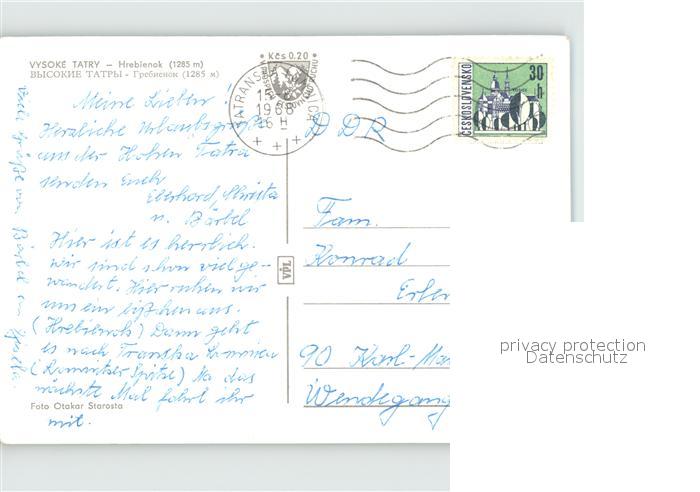 VYSOKÉ TATRY – Hrebienok (1285 m)
ВЫСОКИЕ ТАТРЫ - Гребиенок (1285 м)
Kčs 0.20
15
1968
16 H
ČESKOSLOVENSKO
30 h
Meine Lieben!
Herzliche Urlaubsgrüße
aus der Hohen Tatra
senden Euch
Eberhard, Christa
u. Bärbel
Hier ist es herrlich.
Wir sind schon viel ge-
wandert. Hier ruhen wir
uns ein bißchen aus.
(Hrebienok) Dann geht
es nach Transka Lomnica
(Lomnitzer Spitze) Na das
nächste Mal fahrt ihr
mit.
Viele Grüße von Bärbel an
DDR
Fam.
Konrad
90 Karl-Ma
Wendegang
VPL
Foto Otakar Starosta
privacy protection
Datenschutz